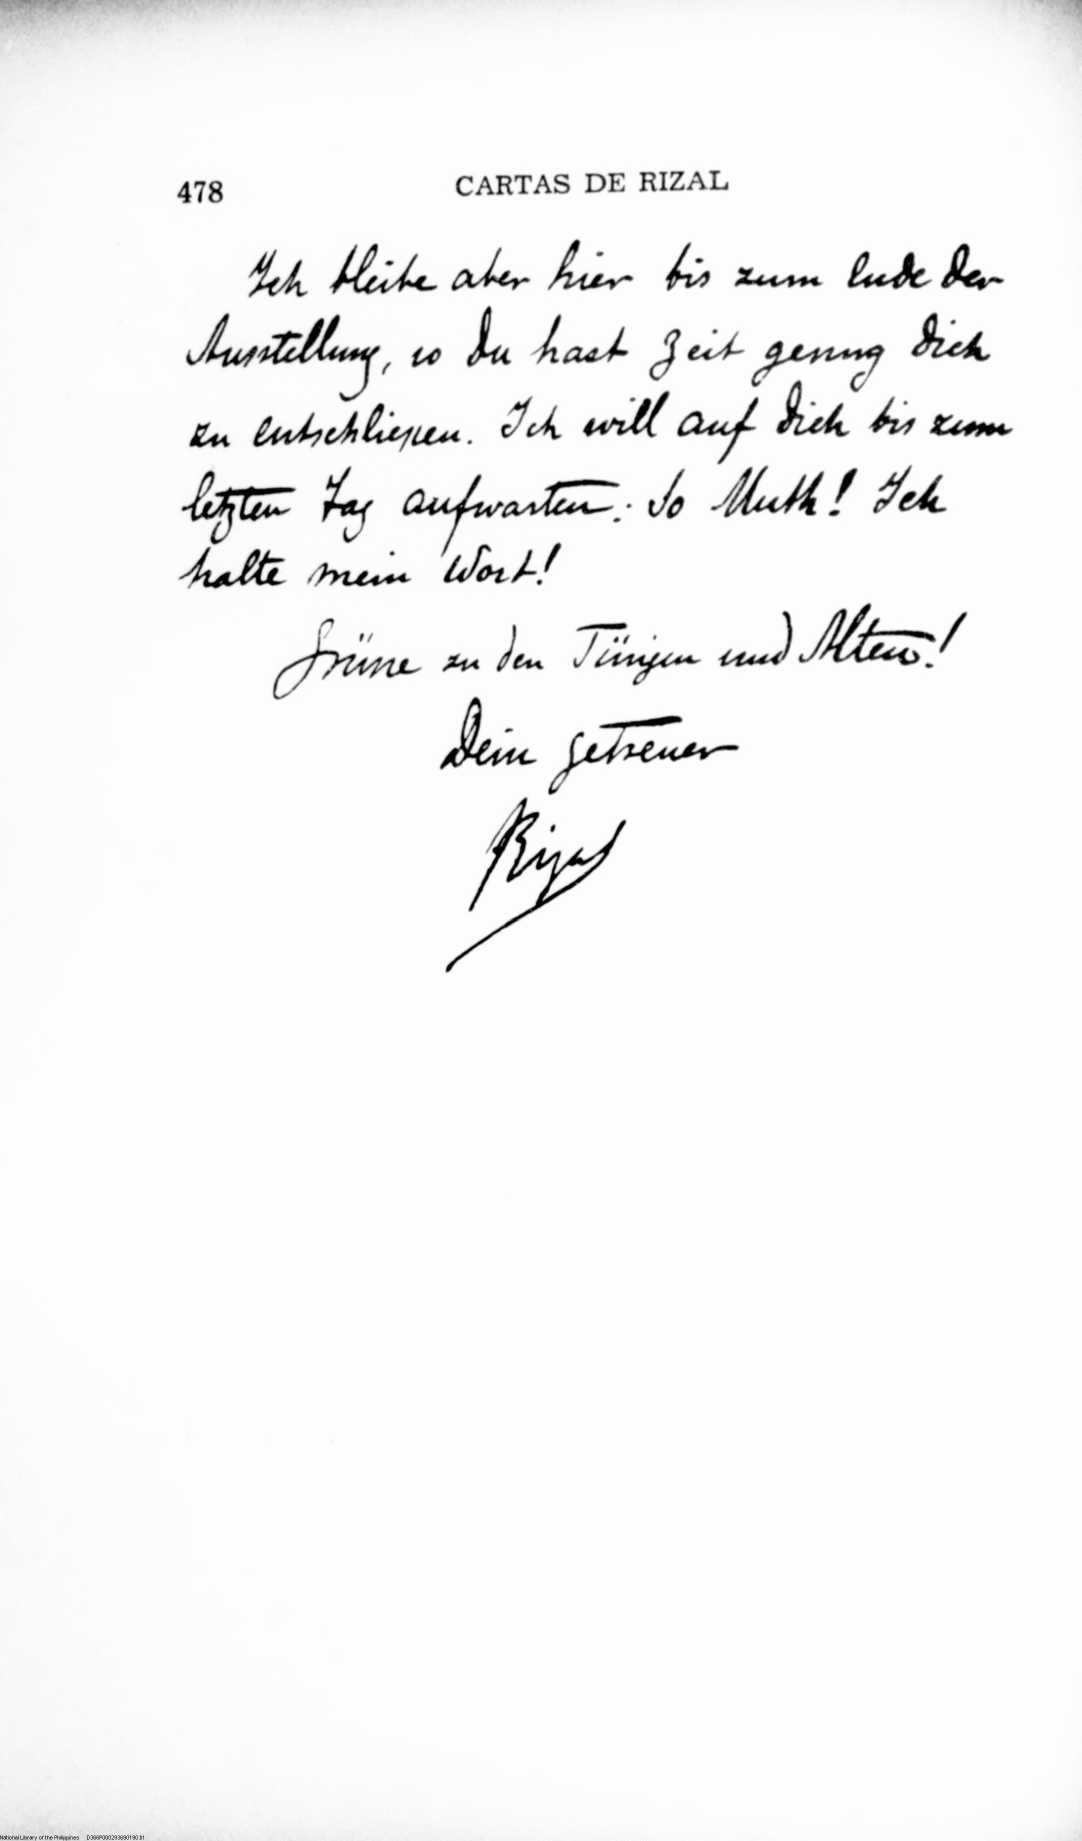 478 CARTAS DE RIZAL
Ich bleibe aber hier bis zum Ende der
Ausstellung, so Du hast Zeit genug Dich
zu entschließen. Ich will auf Dich bis zum
letzten Tag aufwarten: So Muth! Ich
halte mein Wort!
Grüsse zu den Jüngen und Alten!
Dein getreuer
Rizal
National Library of the Philippines